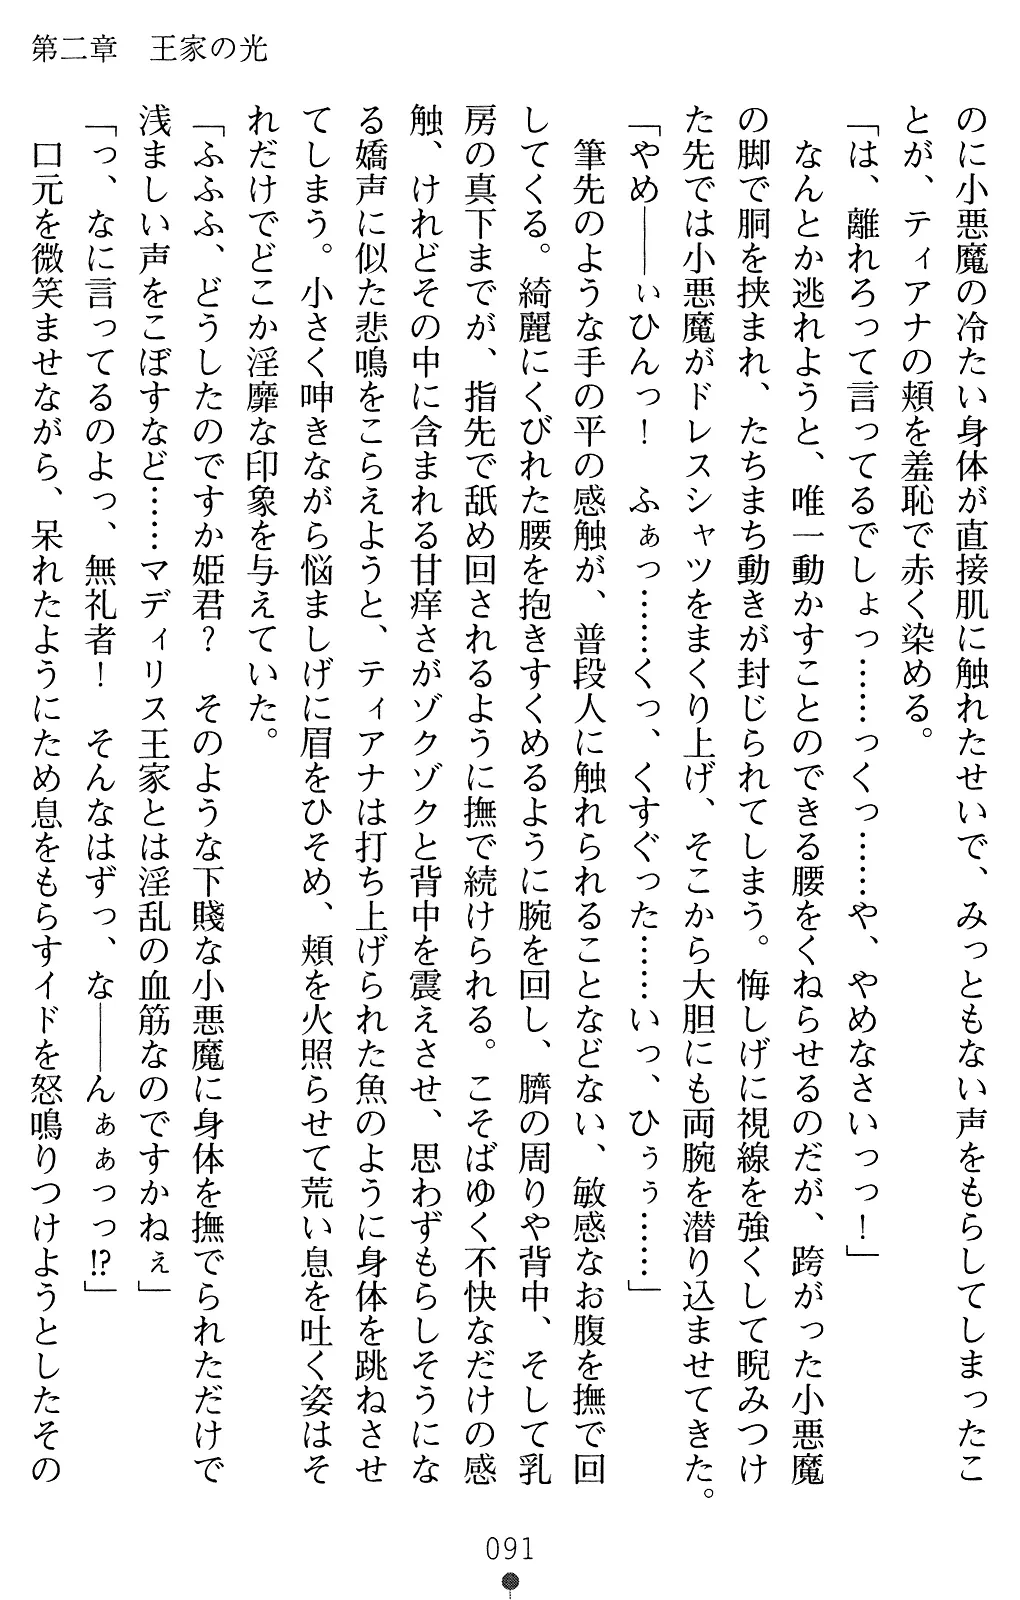 第二章　王家の光
のに小悪魔の冷たい身体が直接肌に触れたせいで、みっともない声をもらしてしまったこ
とが、ティアナの頬を羞恥で赤く染める。
「は、離れろって言ってるでしょっ……っくっ……や、やめなさいっっ！」
なんとか逃れようと、唯一動かすことのできる腰をくねらせるのだが、跨がった小悪魔
の脚で胴を挟まれ、たちまち動きが封じられてしまう。悔しげに視線を強くして睨みつけ
た先では小悪魔がドレスシャツをまくり上げ、そこから大胆にも両腕を潜り込ませてきた。
「やめ――ぃひんっ！　ふぁっ……くっ、くすぐった……いっ、ひぅぅ……」
筆先のような手の平の感触が、普段人に触れられることなどない、敏感なお腹を撫で回
してくる。綺麗にくびれた腰を抱きすくめるように腕を回し、臍の周りや背中、そして乳
房の真下までが、指先で舐め回されるように撫で続けられる。こそばゆく不快なだけの感
触、けれどその中に含まれる甘痒さがゾクゾクと背中を震えさせ、思わずもらしそうにな
る嬌声に似た悲鳴をこらえようと、ティアナは打ち上げられた魚のように身体を跳ねさせ
てしまう。小さく呻きながら悩ましげに眉をひそめ、頬を火照らせて荒い息を吐く姿はそ
れだけでどこか淫靡な印象を与えていた。
「ふふふ、どうしたのですか姫君？　そのような下賤な小悪魔に身体を撫でられただけで
浅ましい声をこぼすなど……マディリス王家とは淫乱の血筋なのですかねぇ」
「っ、なに言ってるのよっ、無礼者！　そんなはずっ、な――んぁぁっっ!?」
口元を微笑ませながら、呆れたようにため息をもらすイドを怒鳴りつけようとしたその
091